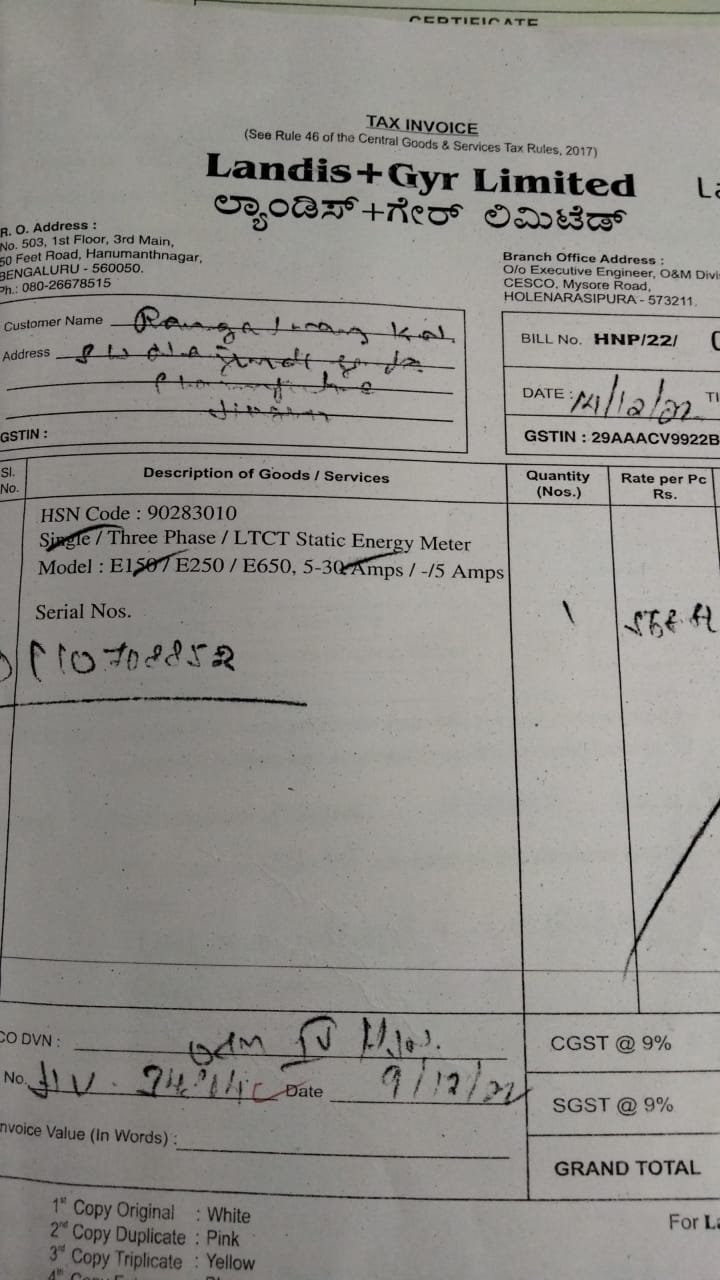 CERTIFICATE
TAX INVOICE
(See Rule 46 of the Central Goods & Services Tax Rules, 2017)
Landis+Gyr Limited
ಲ್ಯಾಂಡಿಸ್+ಗೇರ್ ಲಿಮಿಟೆಡ್
R. O. Address :
No. 503, 1st Floor, 3rd Main,
50 Feet Road, Hanumanthnagar,
BENGALURU - 560050.
Ph.: 080-26678515
Branch Office Address :
O/o Executive Engineer, O&M Divi
CESCO, Mysore Road,
HOLENARASIPURA - 573211.
Customer Name
Address
GSTIN :
BILL No. HNP/22/
DATE : 14/12/22
GSTIN : 29AAACV9922B
Sl. No.
Description of Goods / Services
Quantity (Nos.)
Rate per Pc Rs.
HSN Code : 90283010
Single / Three Phase / LTCT Static Energy Meter
Model : E150 / E250 / E650, 5-30 Amps / -/5 Amps
Serial Nos.
1
10708852
DVN :
CGST @ 9%
No. Date 9/12/22
SGST @ 9%
Invoice Value (In Words) :
GRAND TOTAL
1st Copy Original : White
2nd Copy Duplicate : Pink
3rd Copy Triplicate : Yellow
For